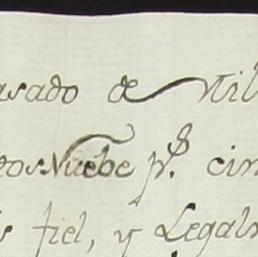 asado de Mil
tos Nuebe p.ˢ cin
s fiel, y Legalm